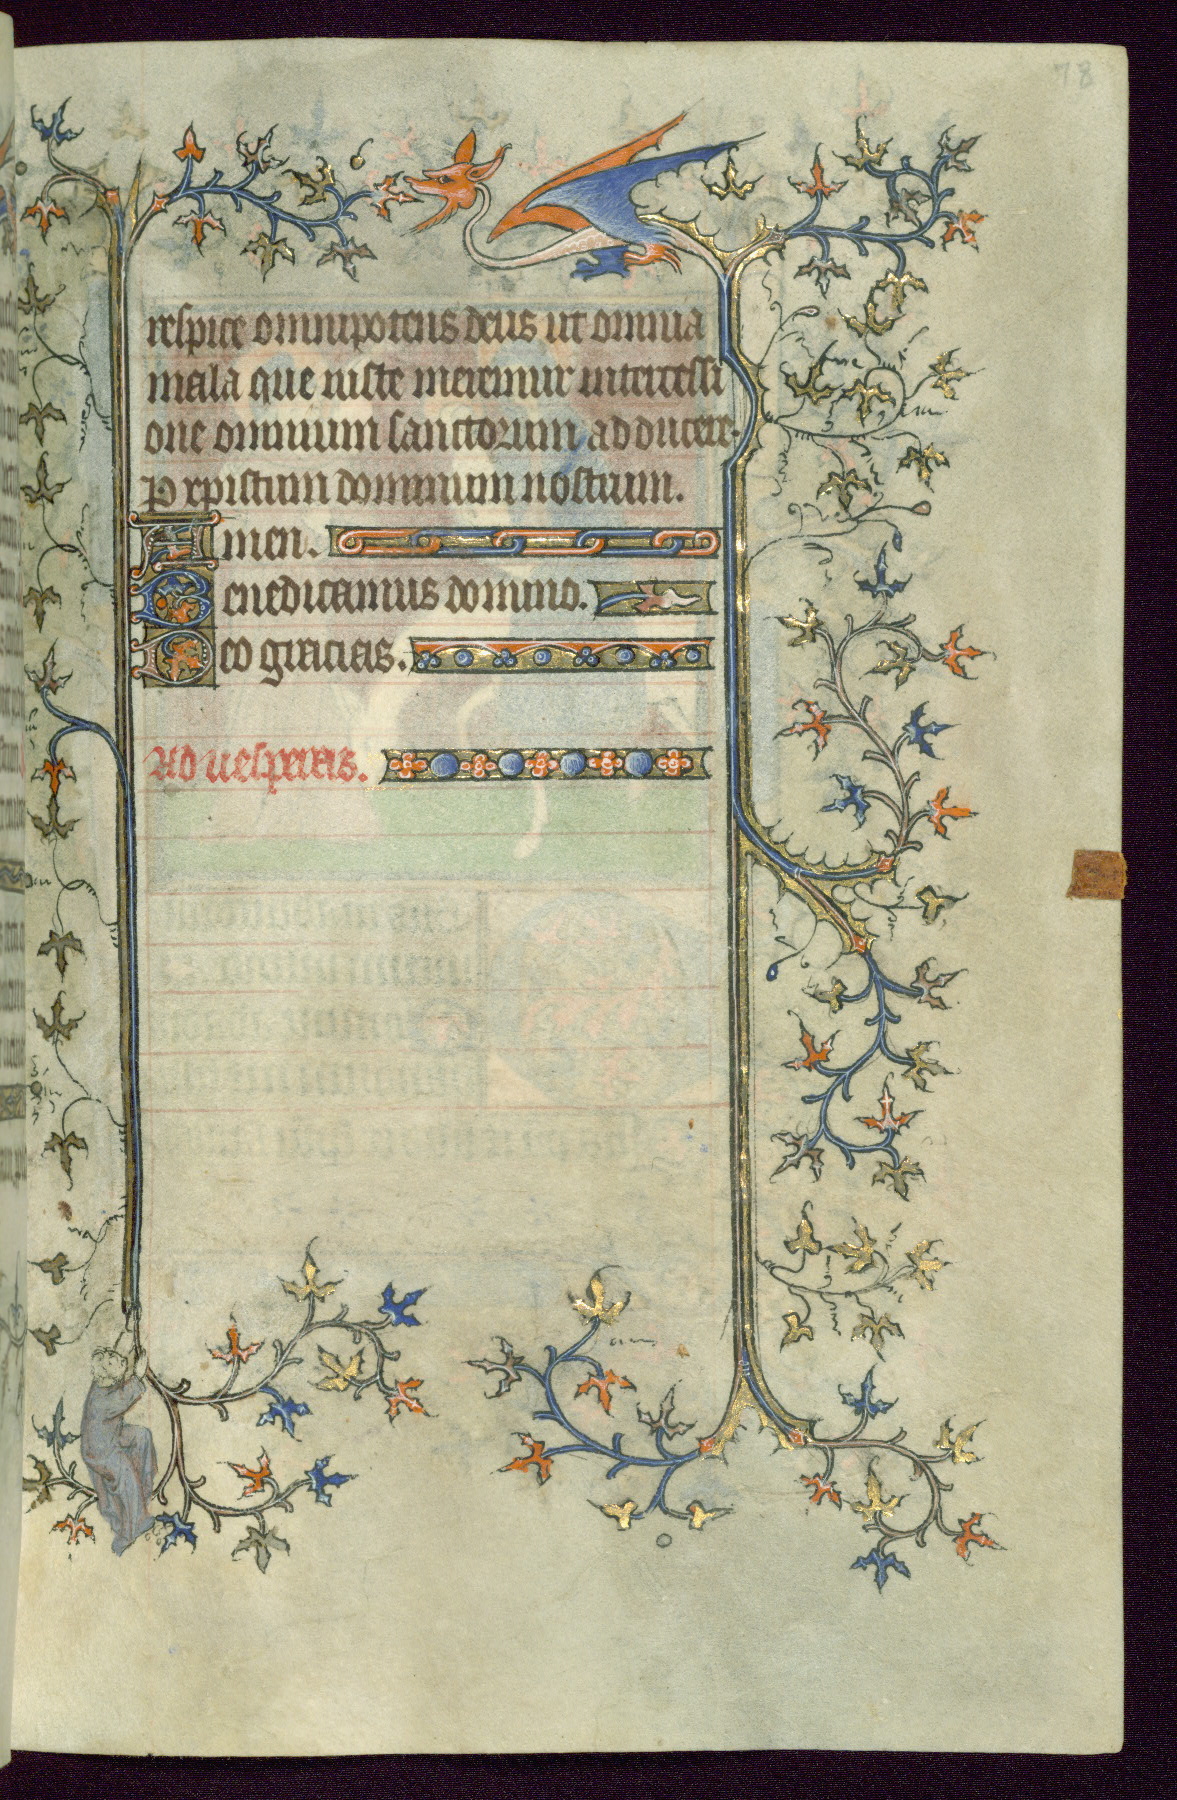 78
respice omnipotens deus ut omnia
mala que iuste meremur intercessi
one omnium sanctorum adducere.
P xpistum dominum nostrum.
Amen.
Benedicamus domino.
Deo gracias.
Ad uesperas.